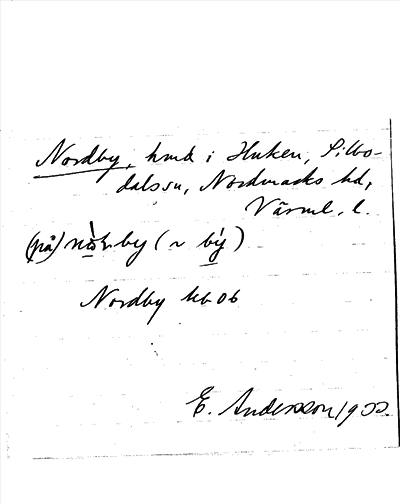 Nordby, hmd i Huken, Silbo-
dals sn, Nordmarks hd,
Värml. l.
(på) nòrby (~ bý)
Nordby kb 06
E. Andersson 1922.